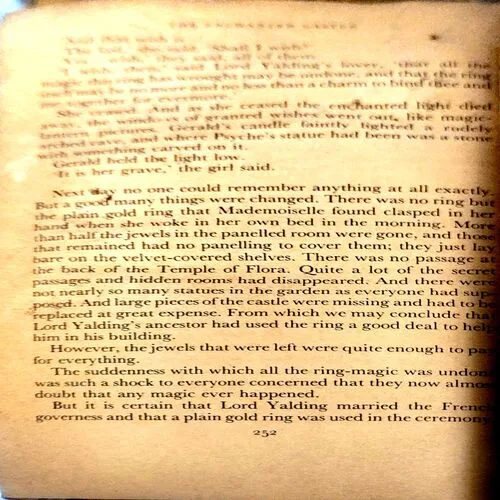 THE ENCHANTED CASTLE
'And then wish
'The last,' she said. 'Shall I wish?'
'Yes wish,' they said, all of them.
'I wish, then,' said Lord Yalding's lover, 'that all the
magic this ring has wrought may be undone, and that the ring
may be no more and no less than a charm to bind thee and
me together for evermore.'
She ceased. And as she ceased the enchanted light died
away, the windows of granted wishes went out, like magic-
lantern pictures. Gerald's candle faintly lighted a rudely
arched cave, and where Psyche's statue had been was a stone
with something carved on it.
Gerald held the light low.
'It is her grave,' the girl said.
Next day no one could remember anything at all exactly.
But a good many things were changed. There was no ring but
the plain gold ring that Mademoiselle found clasped in her
hand when she woke in her own bed in the morning. More
than half the jewels in the panelled room were gone, and those
that remained had no panelling to cover them; they just lay
bare on the velvet-covered shelves. There was no passage at
the back of the Temple of Flora. Quite a lot of the secret
passages and hidden rooms had disappeared. And there were
not nearly so many statues in the garden as everyone had sup-
posed. And large pieces of the castle were missing and had to be
replaced at great expense. From which we may conclude that
Lord Yalding's ancestor had used the ring a good deal to help
him in his building.
However, the jewels that were left were quite enough to pay
for everything.
The suddenness with which all the ring-magic was undone
was such a shock to everyone concerned that they now almost
doubt that any magic ever happened.
But it is certain that Lord Yalding married the French
governess and that a plain gold ring was used in the ceremony
252